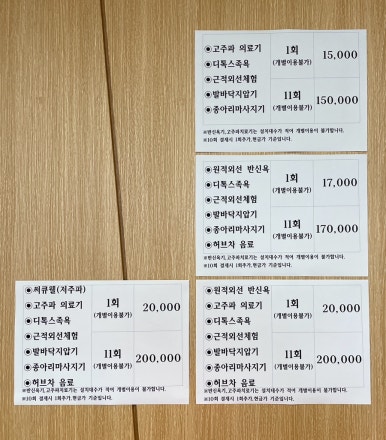 ◉고주파 의료기
◉디톡스족욕
◉근적외선체험
◉발바닥지압기
◉종아리마사지기
1회
(개별이용불가)
15,000
11회
(개별이용불가)
150,000
※반신욕기,고주파치료기는 설치대수가 적어 개별이용이 불가합니다.
※10회 결제시 1회추가,현금가 기준입니다.
◉원적외선 반신욕
◉디톡스족욕
◉근적외선체험
◉발바닥지압기
◉종아리마사지기
◉허브차 음료
1회
(개별이용불가)
17,000
11회
(개별이용불가)
170,000
※반신욕기,고주파치료기는 설치대수가 적어 개별이용이 불가합니다.
※10회 결제시 1회추가,현금가 기준입니다.
◉써큐웰(저주파)
◉고주파 의료기
◉디톡스족욕
◉근적외선체험
◉발바닥지압기
◉종아리마사지기
◉허브차 음료
1회
(개별이용불가)
20,000
11회
(개별이용불가)
200,000
※반신욕기,고주파치료기는 설치대수가 적어 개별이용이 불가합니다.
※10회 결제시 1회추가,현금가 기준입니다.
◉원적외선 반신욕
◉고주파 의료기
◉디톡스족욕
◉근적외선체험
◉발바닥지압기
◉종아리마사지기
◉허브차 음료
1회
(개별이용불가)
20,000
11회
(개별이용불가)
200,000
※반신욕기,고주파치료기는 설치대수가 적어 개별이용이 불가합니다.
※10회 결제시 1회추가,현금가 기준입니다.